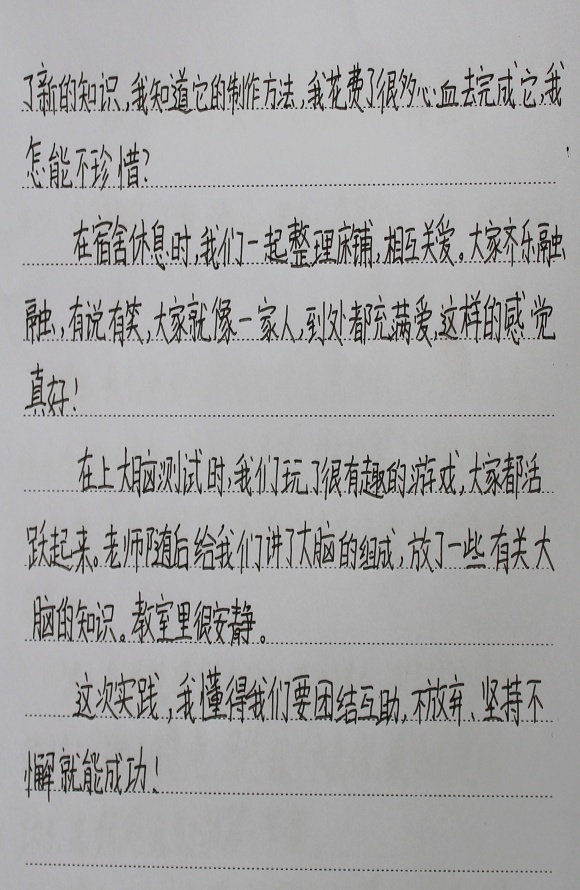 了新的知识,我知道它的制作方法,我花费了很多心血去完成它,我
怎能不珍惜?
在宿舍休息时,我们一起整理床铺,相互关爱。大家齐乐融
融,有说有笑,大家就像一家人,到处都充满爱,这样的感觉
真好!
在上大脑测试时,我们玩了很有趣的游戏,大家都活
跃起来。老师随后给我们讲了大脑的组成,放了一些有关大
脑的知识。教室里很安静。
这次实践,我懂得我们要团结互助,不放弃、坚持不
懈就能成功!